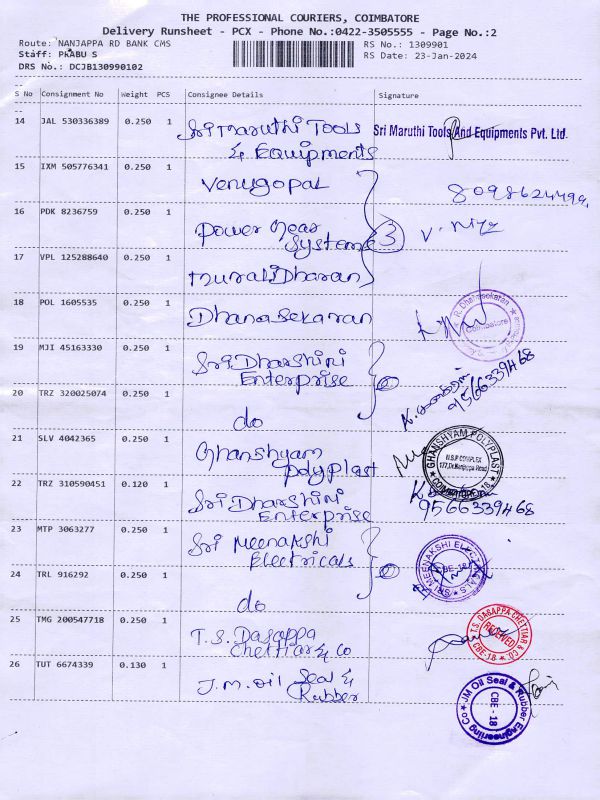 THE PROFESSIONAL COURIERS, COIMBATORE
Delivery Runsheet - PCX - Phone No.:0422-3505555 - Page No.:2
Route: NANJAPPA RD BANK CMS
RS No.: 1309901
Staff: PRABU S
RS Date: 23-Jan-2024
DRS No.: DCJB130990102
S No Consignment No Weight PCS Consignee Details Signature
14 JAL 530336389 0.250 1 Sri Maruthi Tools Sri Maruthi Tools And Equipments Pvt. Ltd.
& Equipments
15 IXM 505776341 0.250 1 Venugopal
16 PDK 8236759 0.250 1 Power Gear
Systems 3
17 VPL 125288640 0.250 1 Muralidharan
18 POL 1605535 0.250 1 Dhanasekaran R. Dhanasekaran Coimbatore
19 MJI 45163330 0.250 1 Sri Dharshini
Enterprise 2
9566339468
20 TRZ 320025074 0.250 1 do
21 SLV 4042365 0.250 1 Ghanshyam
Polyplast
GHANSHYAM POLYPLAST
COIMBATORE-18
22 TRZ 310590451 0.120 1 Sri Dharshini
Enterprise 9566339468
23 MTP 3063277 0.250 1 Sri Meenakshi
Electricals 2
SRI MEENAKSHI ELECTRICALS CBE-18
24 TRL 916292 0.250 1 do
25 TMG 200547718 0.250 1 T.S. Dasappa
Chettiar & Co
T.S. DASAPPA CHETTIAR & CO RECEIVED CBE-18
26 TUT 6674339 0.130 1 J.M. Oil Seal &
Rubber
JM Oil Seal & Rubber Engineering Co CBE - 18